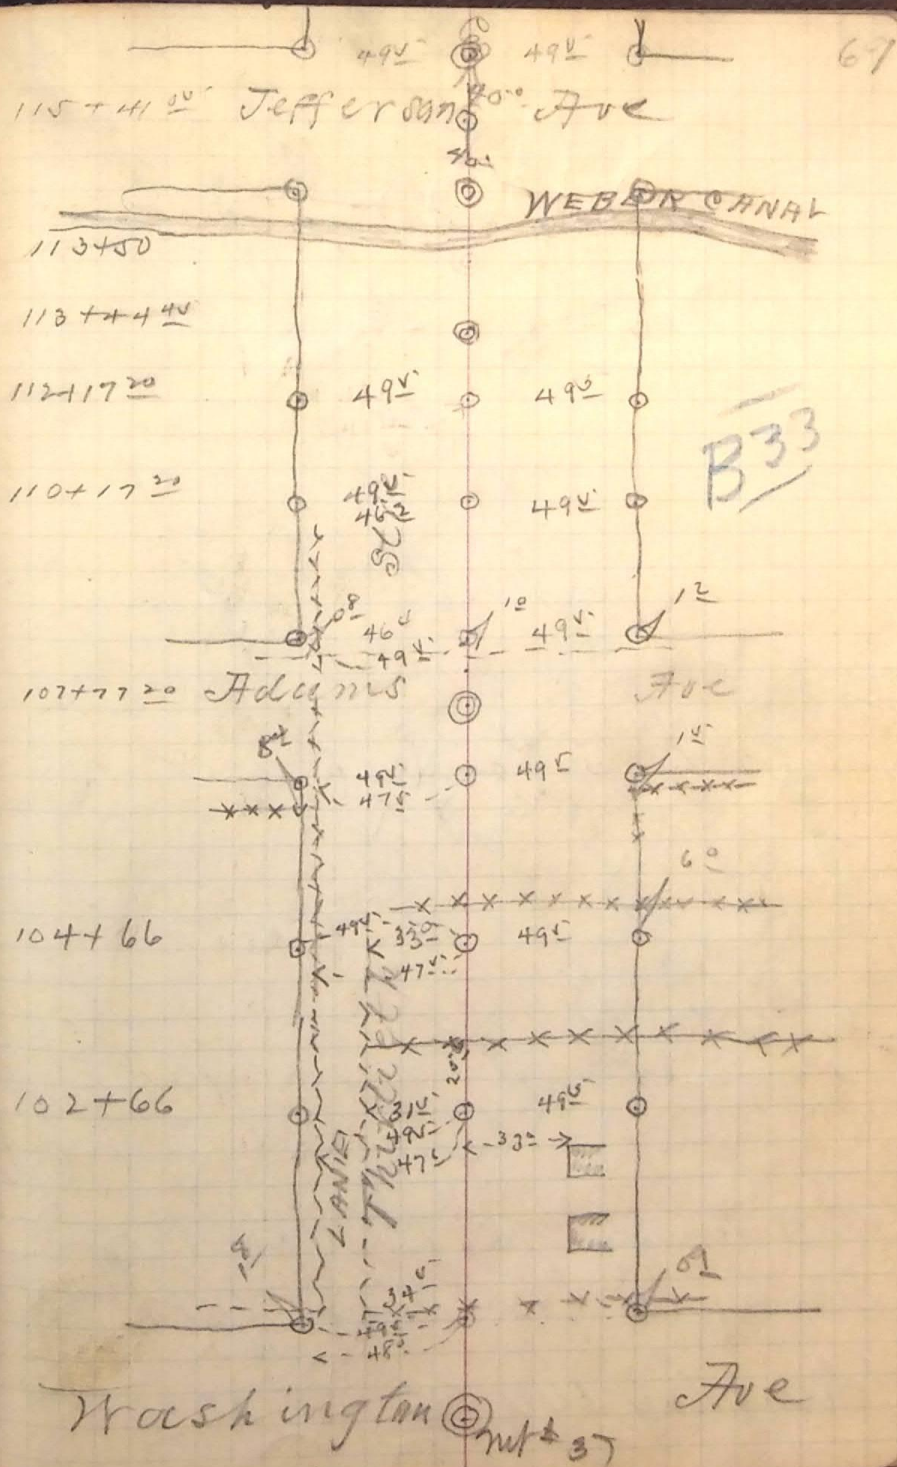 69
49⁵ 49⁵
115+41⁰⁰ Jefferson Ave
WEBER CANAL
113+50
113+44⁴⁵
112+17²⁰ 49⁵ 49⁵
110+17²⁰ 49⁵ 49⁵
46²
B³³
0⁸ 46⁵ 1⁰ 49⁵ 1²
49⁵
107+77²⁰ Adams Ave
8⁴ 49⁵ 49⁵ 1⁵
47⁵
6⁰
104+66 49⁵ 33⁰ 49⁵
47⁵
102+66 31⁵ 49⁵
49⁵
47⁵ 33⁰
CANAL
34⁵
49⁵
48⁰
Washington Ave
37